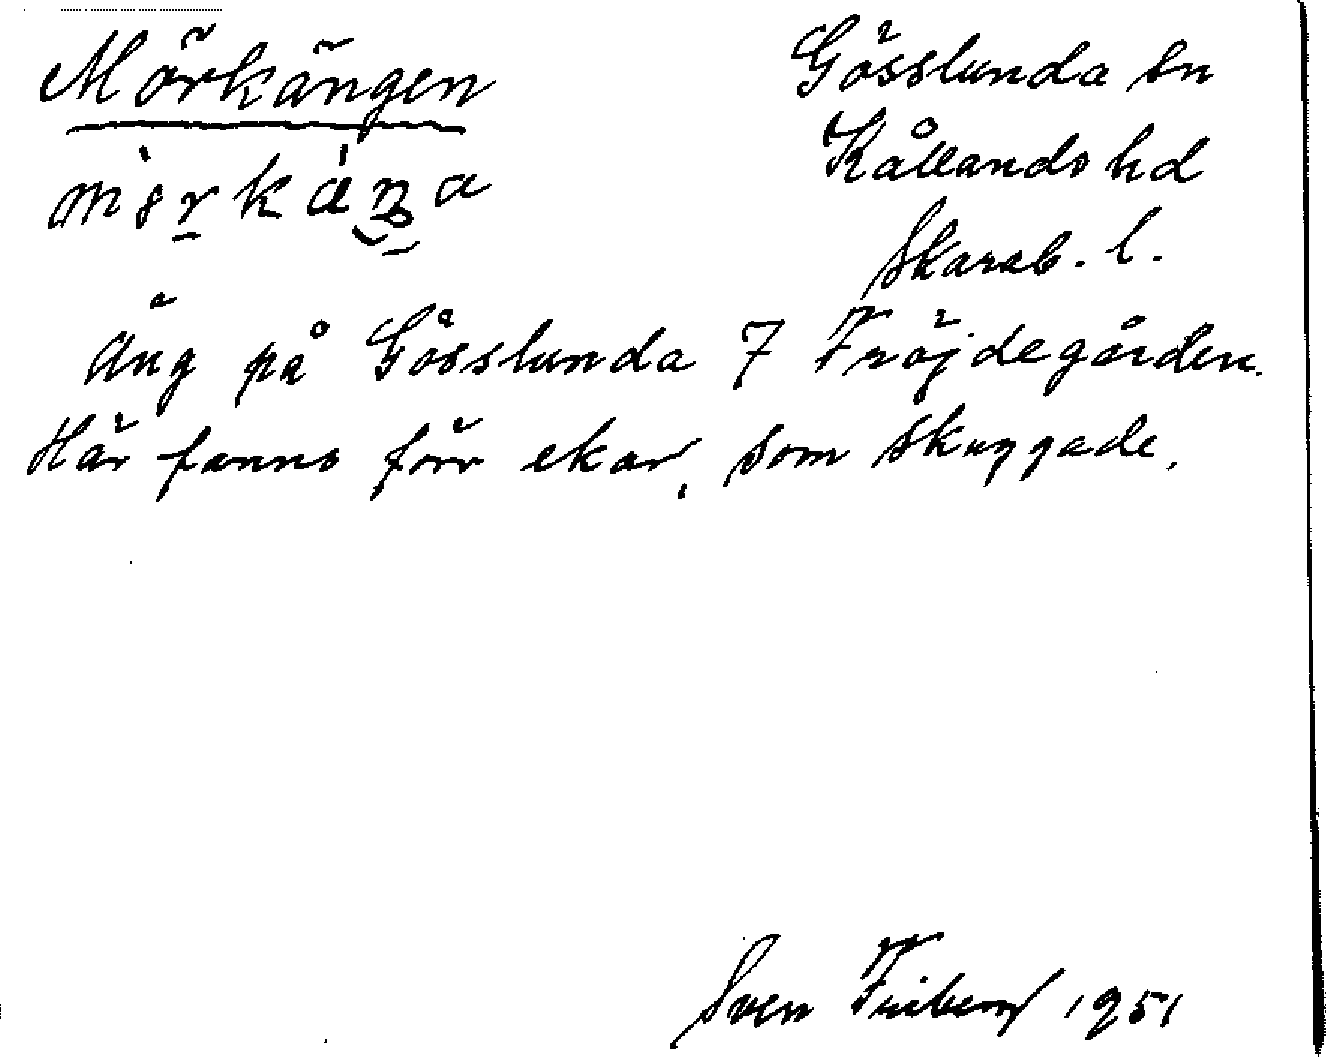 Mörkängen
Gösslunda sn
Kållands hd
Skarab. l.
Äng på Gösslunda 7 Fröjdegården.
Här fanns förr ekar, som skuggade.
Sven Friberg 1951